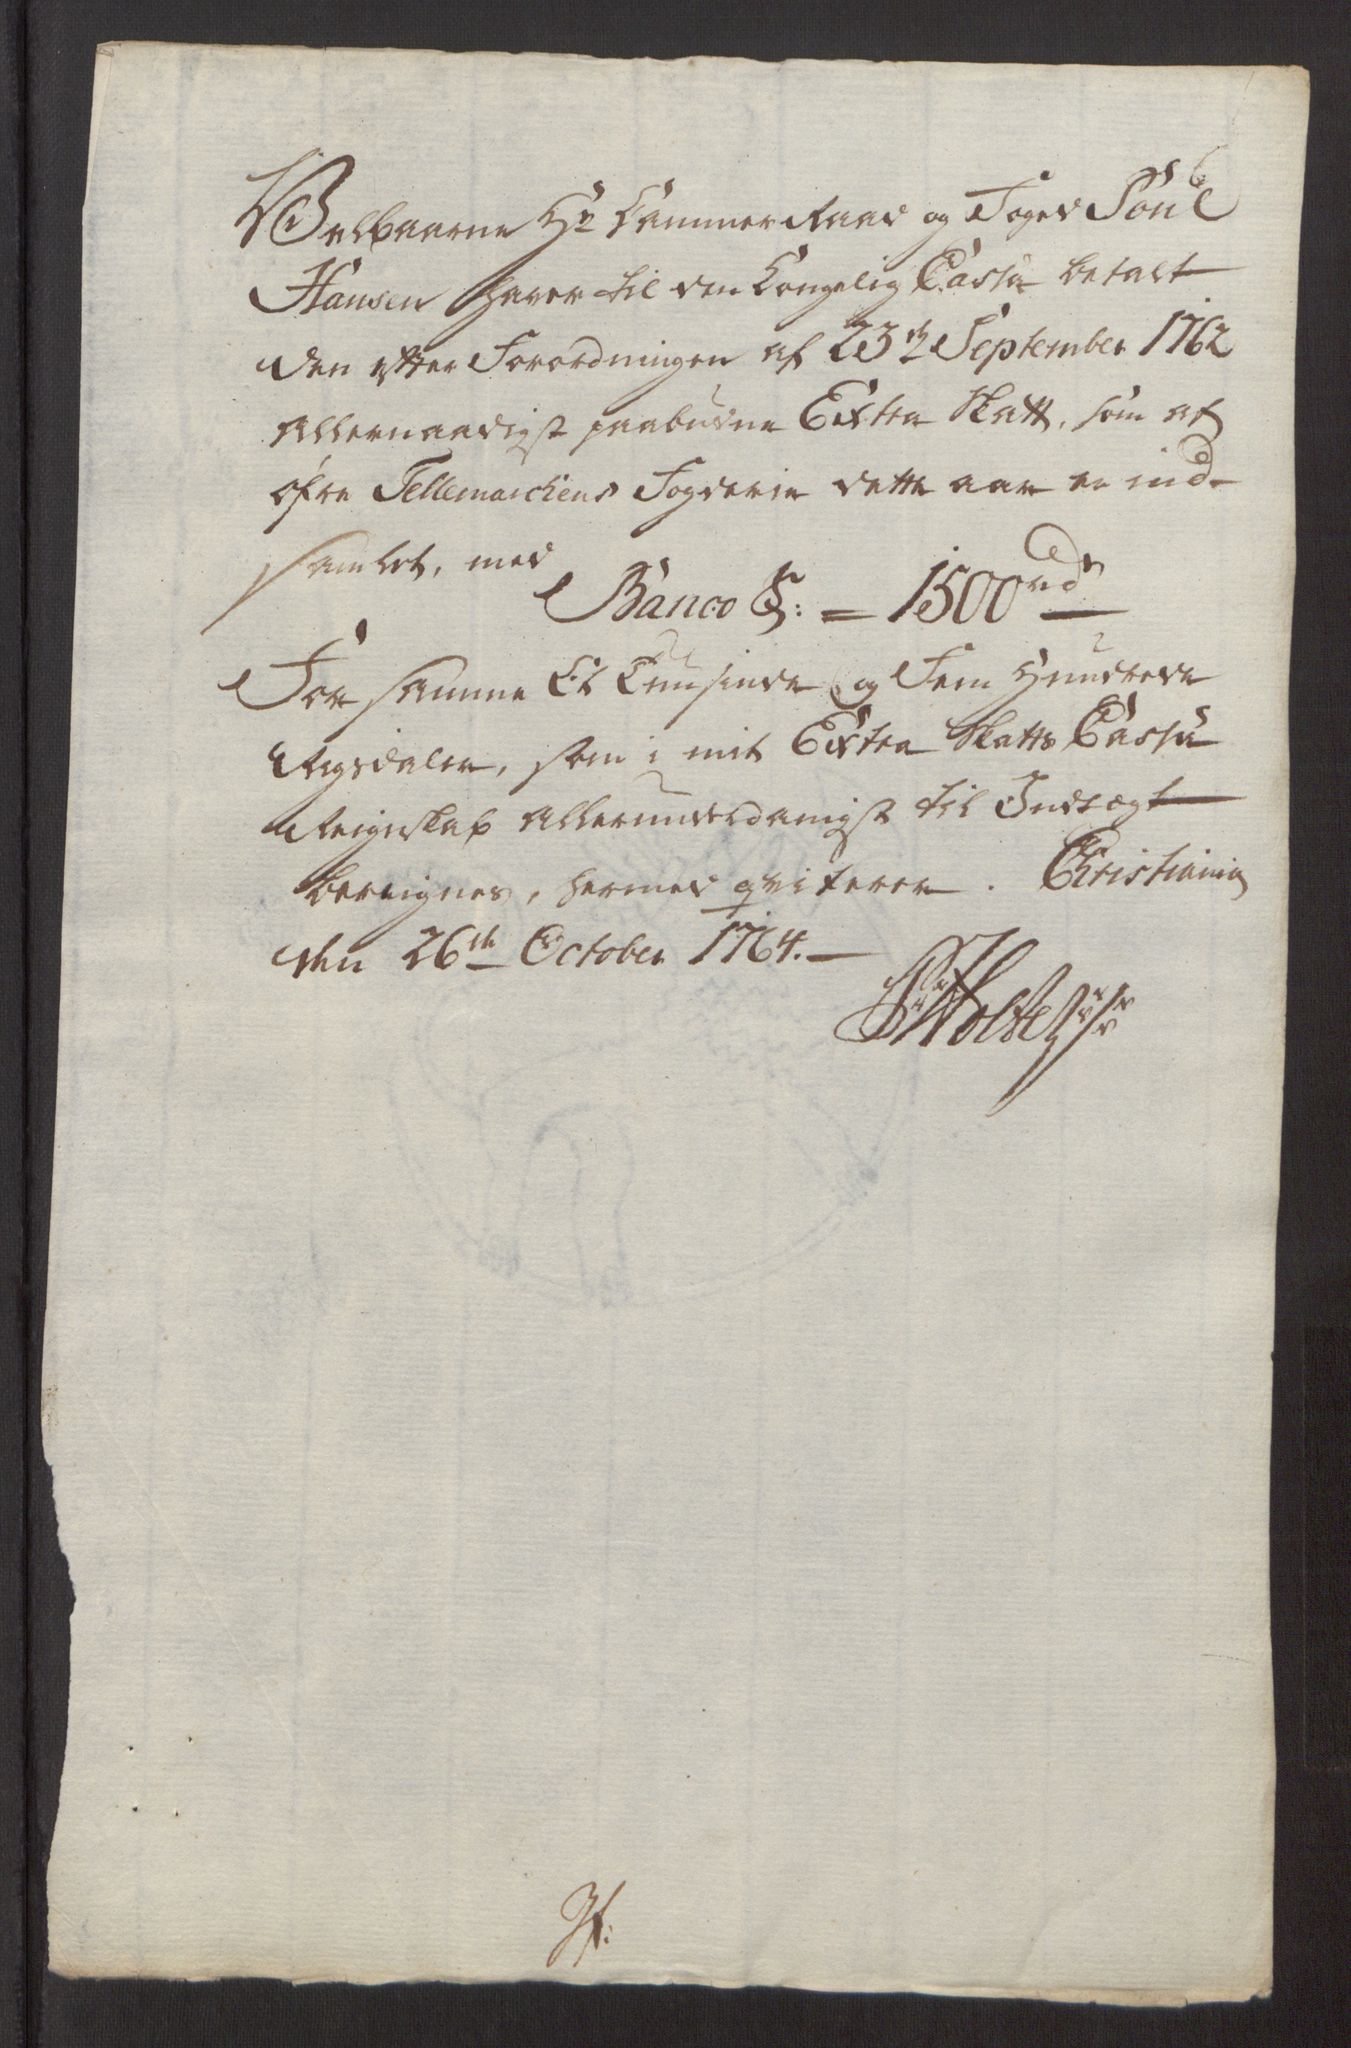 Velbaarne Hr Cammer Raad og Foged Pöul
Hansen haver til den Kongelig Cassa betalt
den efter Forordningen af 23de September 1762
Allernaadigst paabudne Extra Skatt, som af
öfre Tellemarchens Fogderie dette aar er ind-
samlet, med
Banco S: = 1500 rdr
For samme Et Tuusinde og Fem Hundrede
Rigsdaler, som i mit Extra Skatts Cassa
Reignskab Allerunderdanigst til Indtægt
bereignes, hermed qviterer. Christiania
den 26de October 1764.
Holst